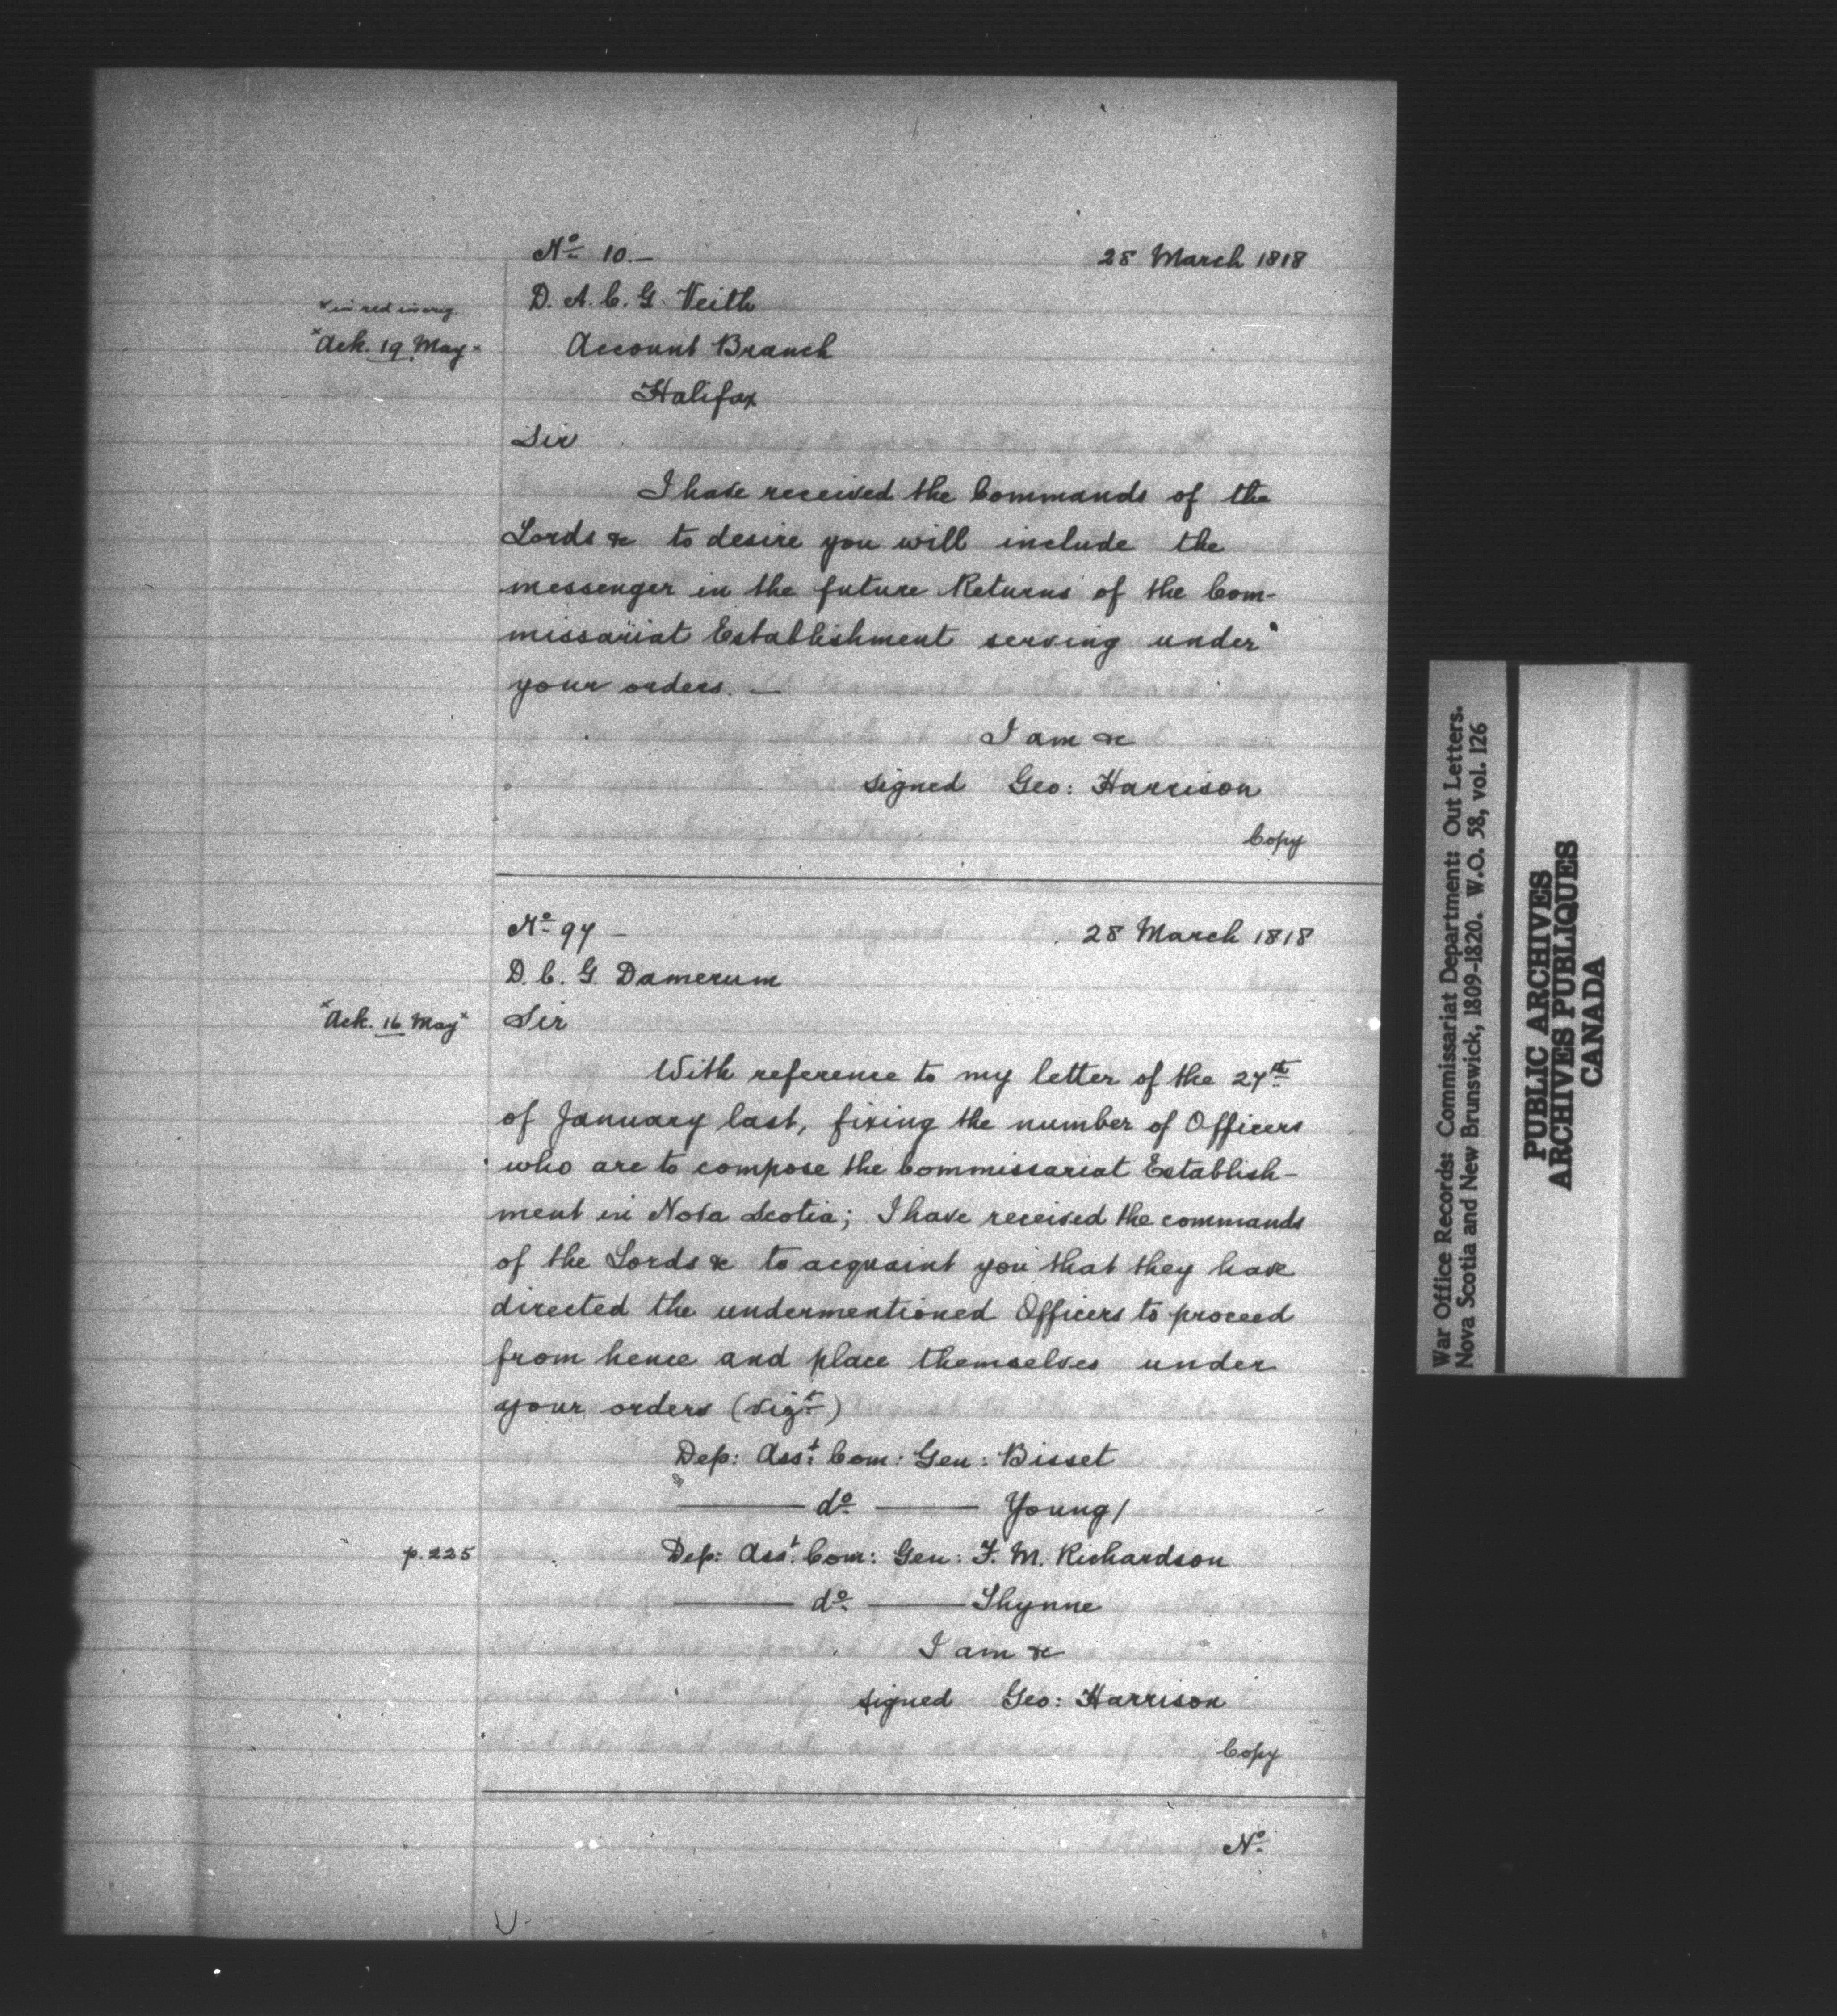 Nº 10.— 28 March 1818
D. A. C. G. Veith
x in red in orig.
x Ack. 19 May x
Account Branch
Halifax
Sir
I have received the Commands of the
Lords &c to desire you will include the
messenger in the future Returns of the Com-
missariat Establishment serving under
your orders. —
I am &c
signed Geo: Harrison
Copy
Nº 97 — 28 March 1818
D. C. G Damerum
x Ack. 16 May x
Sir
With reference to my letter of the 27th
of January last, fixing the number of Officers
who are to compose the Commissariat Establish-
ment in Nova Scotia; I have received the commands
of the Lords &c to acquaint you that they have
directed the undermentioned Officers to proceed
from hence and place themselves under
your orders (vizt)
Dep: Asst. Com: Gen: Bisset
—— do —— Young /
p. 225 Dep: Asst. Com: Gen: F. M. Richardson
—— do. —— Thynne
I am &c
signed Geo: Harrison
Copy
Nº
War Office Records: Commissariat Department: Out Letters.
Nova Scotia and New Brunswick, 1809-1820. W.O. 58, vol. 126
PUBLIC ARCHIVES
ARCHIVES PUBLIQUES
CANADA